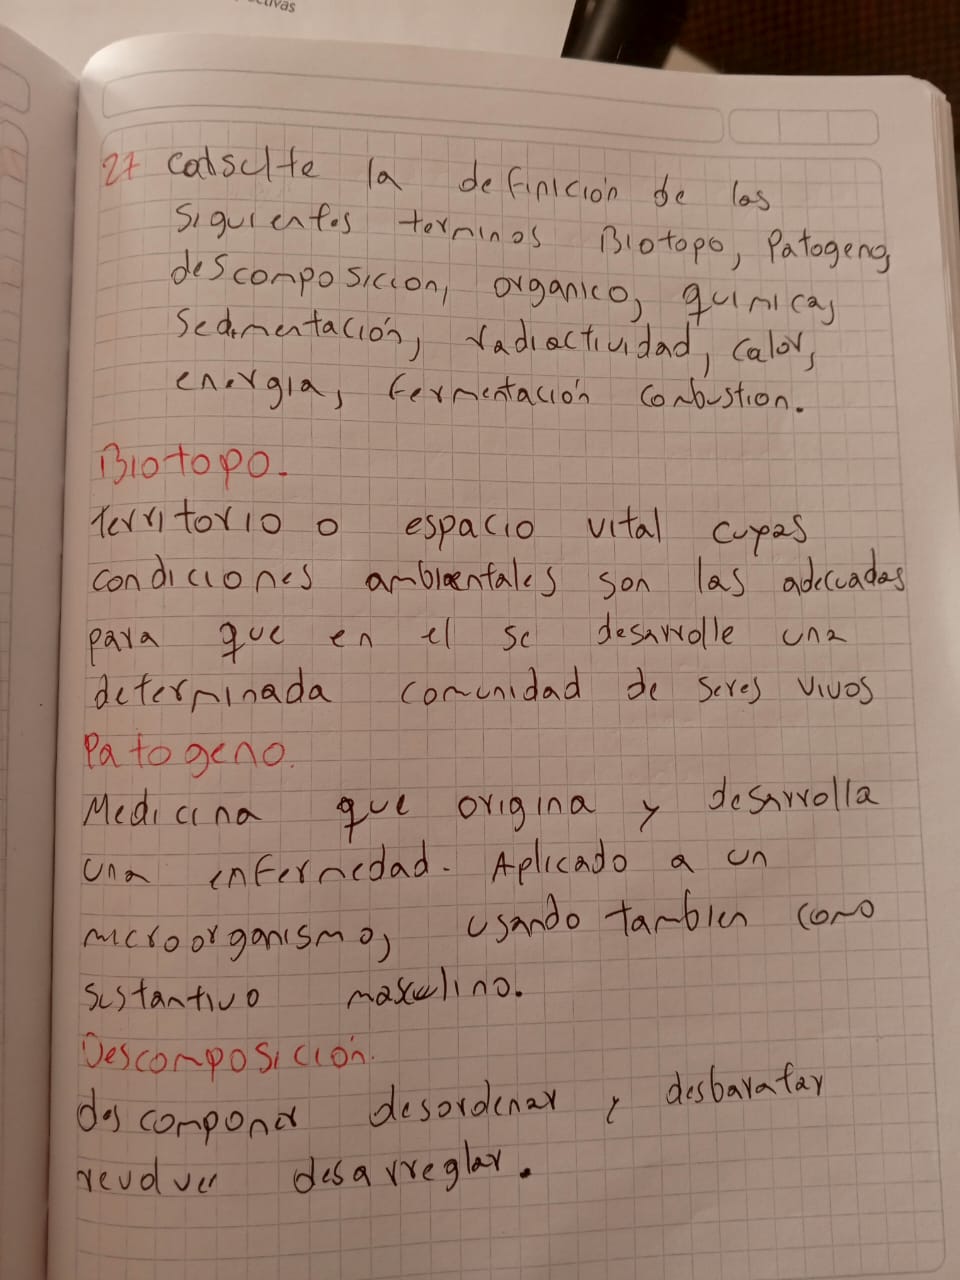 ctivas
27 consulte la definición de los
siguientes terminos Biotopo, Patogeno,
descomposicion, organico, quimica,
sedimentación, radiactividad, calor,
energia, fermentación combustion.
Biotopo.
territorio o espacio vital cuyas
condiciones ambientales son las adecuadas
para que en el se desarrolle una
determinada comunidad de seres vivos
Patogeno.
Medicina que origina y desarrolla
una enfermedad. Aplicado a un
microorganismo, usando tambien como
sustantivo masculino.
Descomposición.
descomponer desordenar y desbaratar
revolver desarreglar.